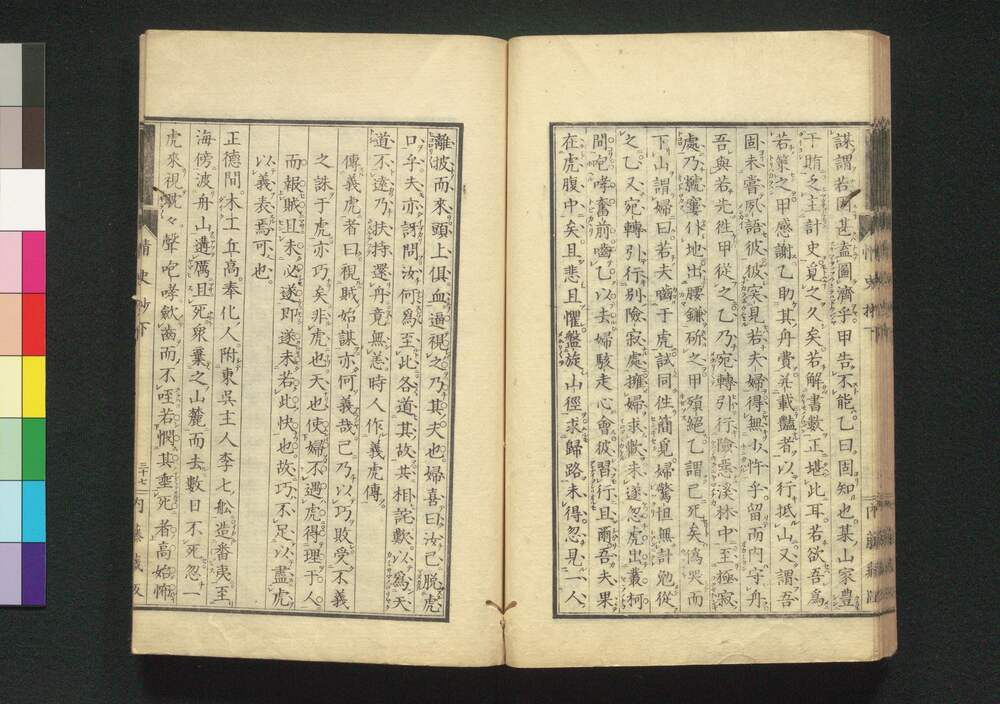 謀謂若困甚盍圖濟乎甲告不能乙曰固知也某山家豊
干賄乏主計史覓之久矣若解書數正堪此耳若欲吾為
若策之甲感謝乙助其舟費并載豔者以行抵山又謂吾
固未嘗夙語彼彼突見若夫婦得無少忤乎留而內守舟
吾與若先往甲從之乙乃宛轉引行險惡溪林中至極寂
處乃蹴蹇仆地出腰鎌斫之甲殞絕乙謂已死矣偽哭而
下山謂婦曰若夫嚙于虎試同往簡覓婦驚怛無計勉從
之乙又宛轉引行別險寂處擁婦求歡未遂忽虎出叢柯
間咆哮奮前嚙乙以去婦駭走心會彼習行且爾吾夫果
在虎腹中矣且悲且懼盤旋山徑求歸路未得忽見一人
離披而來頭上俱血逼視之乃其夫也婦喜曰汝已脫虎
口乎夫亦訝問汝何為至此各道其故共相詫歎以為天
道不遠乃扶持還舟竟無恙時人作義虎傳
傳義虎者曰視賊始謀亦何義哉己乃以巧敗受不義
之誅于虎亦巧矣非虎也天也使婦不遇虎得理于人
而報賊且未必遂即遂未若此快也故巧不足以盡虎
以義表焉可也
正德間木工丘高奉化人附東吳主人李七舩造畨夷至
海傍波舟山遘厲且死衆棄之山麓而去數日不死忽一
虎來視眈々聲咆哮歛齒而不咥若憫其垂死者高始怖
情史抄下
三十七
內藤蔵版